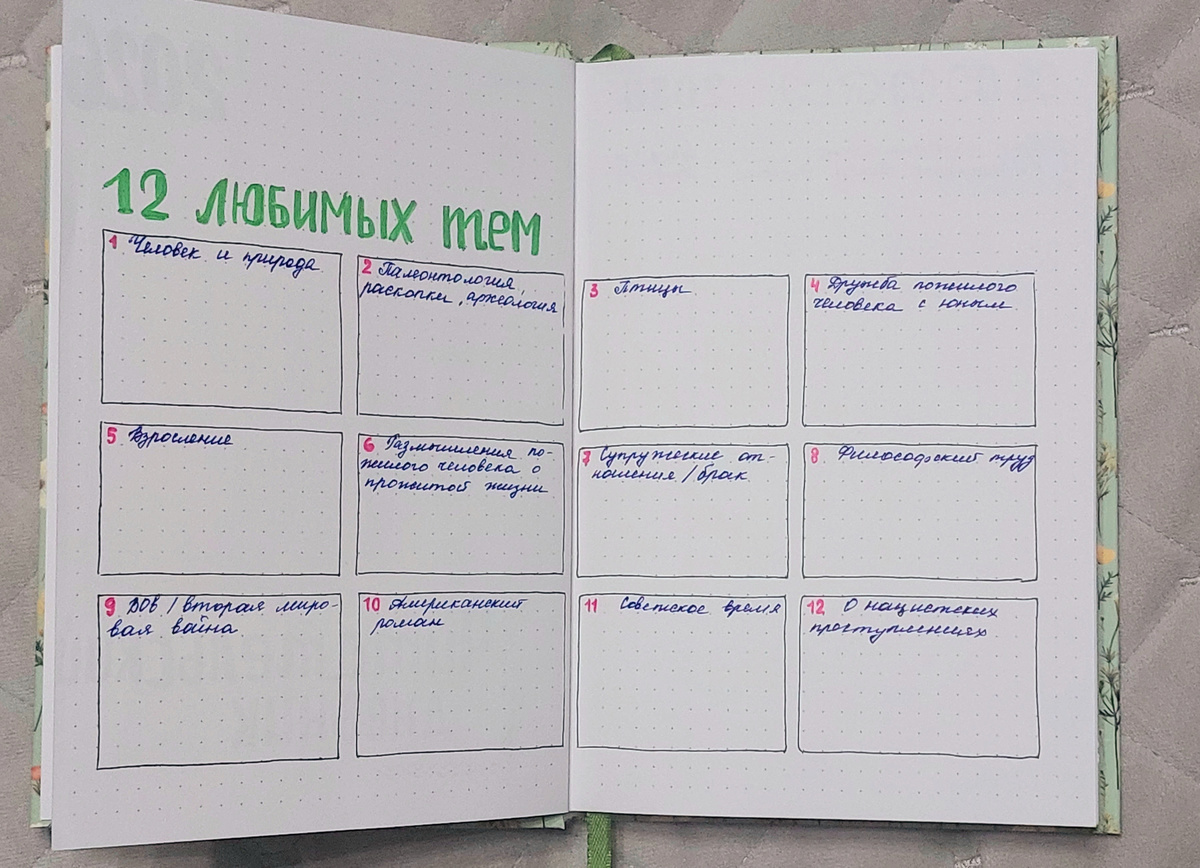 12 ЛЮБИМЫХ ТЕМ
1 Человек и природа
2 Палеонтология,
раскопки, археология
3 Птицы
4 Дружба пожилого
человека с юным
5 Взросление
6 Размышления по-
жилого человека о
прожитой жизни
7 Супружеские от-
ношения / брак
8. Философский труд
9 ВОВ / вторая миро-
вая война
10 Американский
роман
11 Советское время
12 О нацистских
преступлениях